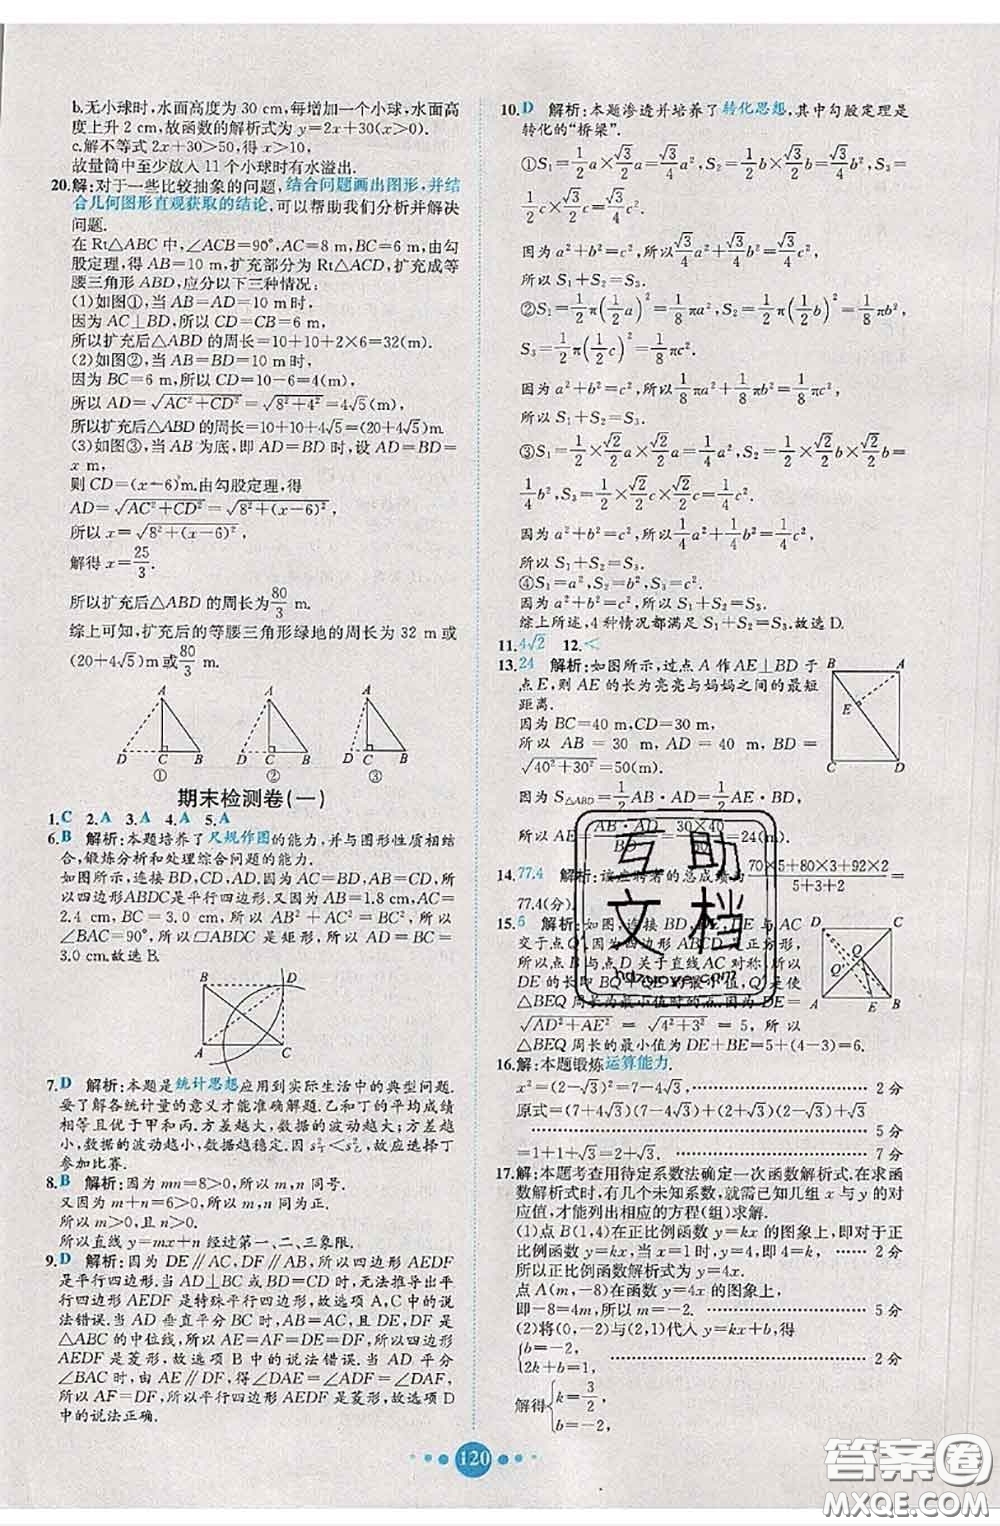 b.无小球时,水面高度为 30 cm,每增加一个小球,水面高
度上升 2 cm,故函数的解析式为 y=2x+30(x>0).
c.解不等式 2x+30>50,得 x>10,
故量筒中至少放入 11 个小球时有水溢出.
20.解:对于一些比较抽象的问题,结合问题画出图形,并结
合几何图形直观获取的结论,可以帮助我们分析并解决
问题.
在 Rt△ABC 中,∠ACB=90°,AC=8 m,BC=6 m,由勾
股定理,得 AB=10 m,扩充部分为 Rt△ACD,扩充成等
腰三角形 ABD,应分以下三种情况:
(1)如图①,当 AB=AD=10 m 时,
因为 AC⊥BD,所以 CD=CB=6 m,
所以扩充后△ABD 的周长=10+10+2×6=32(m).
(2)如图②,当 AB=BD=10 m 时,
因为 BC=6 m,所以 CD=10-6=4(m),
所以 AD=√(AC²+CD²)=√(8²+4²)=4√5(m),
所以扩充后△ABD 的周长=10+10+4√5=(20+4√5)m.
(3)如图③,当 AB 为底,即 AD=BD 时,设 AD=BD=
x m,
则 CD=(x-6)m.由勾股定理,得
AD=√(AC²+CD²)=√(8²+(x-6)²),
所以 x=√(8²+(x-6)²),
解得 x=25/3.
所以扩充后△ABD 的周长为80/3 m.
综上可知,扩充后的等腰三角形绿地的周长为 32 m或
(20+4√5)m或80/3 m.
A A A
D C B D C B D C B
① ② ③
期末检测卷(一)
1.C 2.A 3.A 4.A 5.A
6.B 解析:本题培养了尺规作图的能力,并与图形性质相结
合,锻炼分析和处理综合问题的能力.
如图所示,连接 BD,CD,AD.因为 AC=BD,AB=CD,所
以四边形ABDC是平行四边形.又因为 AB=1.8 cm,AC=
2.4 cm,BC=3.0 cm,所以 AB²+AC²=BC²,所以
∠BAC=90°,所以□ABDC 是矩形,所以 AD=BC=
3.0 cm.故选 B.
B D
A C
7.D 解析:本题是统计思想应用到实际生活中的典型问题.
要了解各统计量的意义才能准确解题.乙和丁的平均成绩
相等且优于甲和丙.方差越大,数据的波动越大;方差越
小,数据的波动越小,数据越稳定.因为 s²丁<s²乙,故应选择丁
参加比赛.
8.B 解析:因为 mn=8>0,所以 m,n 同号.
又因为 m+n=6>0,所以 m,n 同为正.
所以 m>0,且 n>0.
所以直线 y=mx+n 经过第一、二、三象限.
9.D 解析:因为 DE∥AF,DF∥AE,所以四边形 AEDF
是平行四边形.当 AD⊥BC 或 AD=BD 时,无法推导出平
行四边形 AEDF 是特殊平行四边形,故选项 A,C 中的说
法错误.当 AD 垂直平分 BC 时,AB=AC,DF,DE 是
△ABC 的中位线,所以 AE=AF=DE=DF,所以四边形
AEDF 是菱形,故选项 B 中的说法错误.当 AD 平分
∠BAC 时,可证得∠DAE=∠ADF=∠DAF,所以
所以 AF=DF,所以平行四边形 AEDF 是菱形,故选项 D
中的说法正确.
10.D 解析:本题渗透并培养了转化思想,其中勾股定理是
转化的“桥梁”.
①S₁=1/2 a×√3/2 a=√3/4 a²,S₂=1/2 b×√3/2 b=√3/4 b²,S₃=
1/2 c×√3/2 c=√3/4 c².
因为 a²+b²=c²,所以√3/4 a²+√3/4 b²=√3/4 c²,
所以 S₁+S₂=S₃.
②S₁=1/2 π(1/2 a)²=1/8 πa²,S₂=1/2 π(1/2 b)²=1/8 πb²,
S₃=1/2 π(1/2 c)²=1/8 πc².
因为 a²+b²=c²,所以1/8 πa²+1/8 πb²=1/8 πc².
所以 S₁+S₂=S₃.
③S₁=1/2×√2/2 a×√2/2 a=1/4 a²,S₂=1/2×√2/2 b×√2/2 b=
1/4 b²,S₃=1/2×√2/2 c×√2/2 c=1/4 c².
因为 a²+b²=c²,所以1/4 a²+1/4 b²=1/4 c².
所以 S₁+S₂=S₃.
④S₁=a²,S₂=b²,S₃=c².
因为 a²+b²=c²,所以 S₁+S₂=S₃.
综上所述,4 种情况都满足 S₁+S₂=S₃.故选 D.
11.4√2 12.<
13.24 解析:如图所示,过点 A 作AE⊥BD 于
点 E,则 AE 的长为亮亮与妈妈之间的最短
距离.
因为 BC=40 m,CD=30 m,
所以 AB=30 m,AD=40 m,BD=
√(40²+30²)=50(m).
因为 S△ABD=1/2 AB·AD=1/2 BD·AE,
所以 AE=AB·AD/BD=30×40/50=24(m).
B A
E
C D
14.77.4 解析:该应聘者的总成绩为(70×5+80×3+92×2)/(5+3+2)=
77.4(分).
15.6 解析:如图,连接 BD,DE,DE与 AC
交于点 Q′.因为四边形 ABCD 为正方形,
所以点 B 与点 D 关于直线AC 对称.所以
DE的长即 BQ+QE 的最小值,Q′是使
△BEQ 周长为最小值时的点.因为 DE=
√(AD²+AE²)=√(4²+3²)=5,所以
△BEQ 周长的最小值为 DE+BE=5+(4-3)=6.
D C
Q′ Q
A E B
16.解:本题锻炼运算能力.
x²=(2-√3)²=7-4√3, 2 分
原式=(7+4√3)(7-4√3)+(2+√3)(2-√3)+√3
5 分
=1+1+√3=2+√3. 7 分
17.解:本题考查用待定系数法确定一次函数解析式.在求函
数解析式时,有几个未知系数,就需已知几组 x 与 y 的对
应值,才能列出相应的方程(组)求解.
(1)点 B(1,4)在正比例函数 y=kx 的图象上,即对于正
比例函数 y=kx,当 x=1 时,y=4,即 4=k,
所以正比例函数解析式为 y=4x.
点 A(m,-8)在函数 y=4x 的图象上,
即-8=4m,所以 m=-2. 5 分
(2)将(0,-2)与(2,1)代入 y=kx+b,得
{b=-2,
2k+b=1, 2 分
解得{k=3/2,
b=-2,
120
互助
文档
答案圈
MXQE.COM